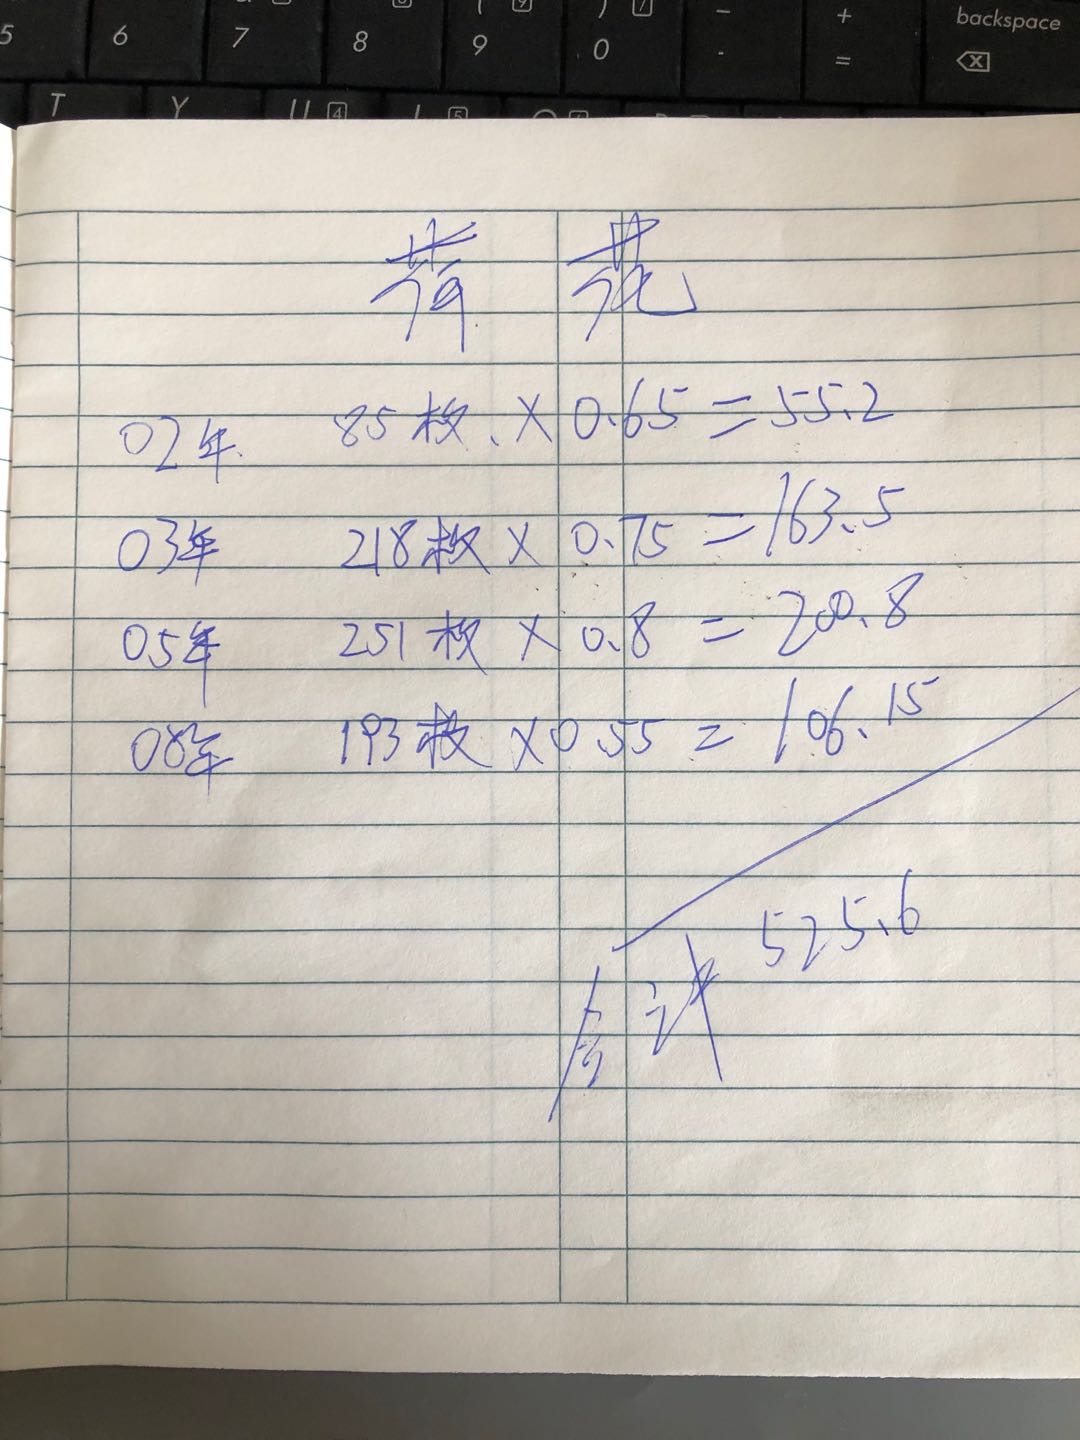 5 6 7 8 9 0 - + = backspace
T Y U 4 5
荷花
02年 85枚 × 0.65 = 55.2
03年 218枚 × 0.75 = 163.5
05年 251枚 × 0.8 = 200.8
08年 193枚 × 0.55 = 106.15
525.6
合计